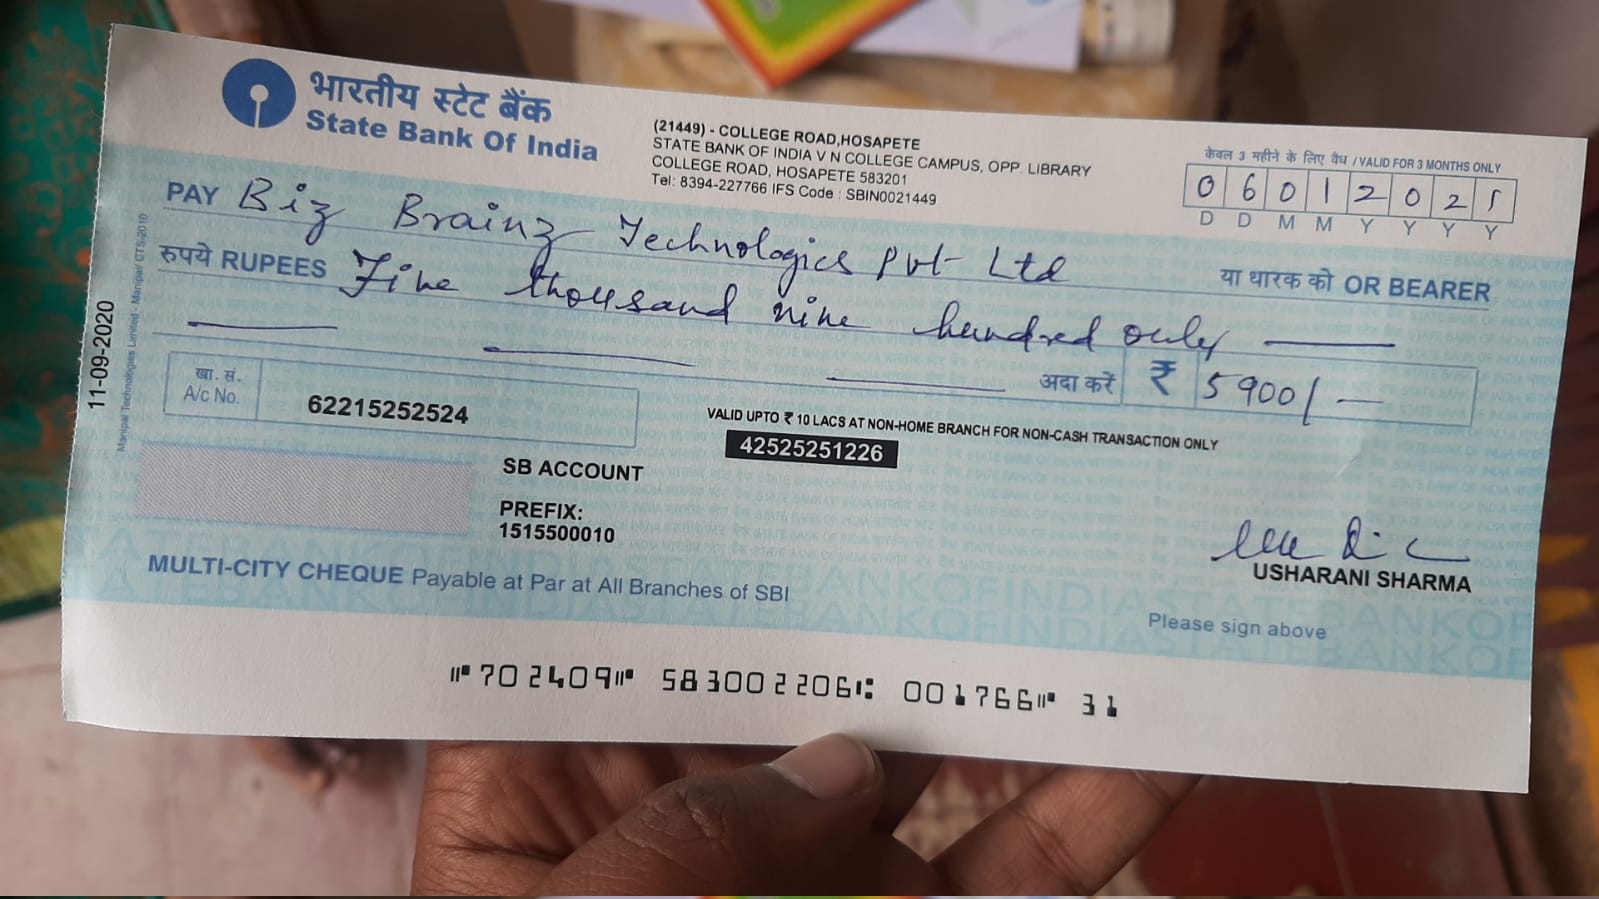 भारतीय स्टेट बैंक
State Bank Of India
(21449) - COLLEGE ROAD,HOSAPETE
STATE BANK OF INDIA V N COLLEGE CAMPUS, OPP. LIBRARY
COLLEGE ROAD, HOSAPETE 583201
Tel: 8394-227766 IFS Code : SBIN0021449
केवल 3 महीने के लिए वैध / VALID FOR 3 MONTHS ONLY
0 6 0 1 2 0 2 1
D D M M Y Y Y Y
PAY Biz Brainz Technologics Pvt Ltd
या धारक को OR BEARER
रुपये RUPEES Five thousand nine hundred only
अदा करें ₹ 5900/-
खा. सं.
A/c No. 62215252524
VALID UPTO ₹ 10 LACS AT NON-HOME BRANCH FOR NON-CASH TRANSACTION ONLY
42525251226
SB ACCOUNT
PREFIX:
1515500010
MULTI-CITY CHEQUE Payable at Par at All Branches of SBI
USHARANI SHARMA
Please sign above
⑈702409⑈ 583002206⑆ 001766⑈ 31
11-09-2020
Manipal Technologies Limited - Manipal/ CTS-2010